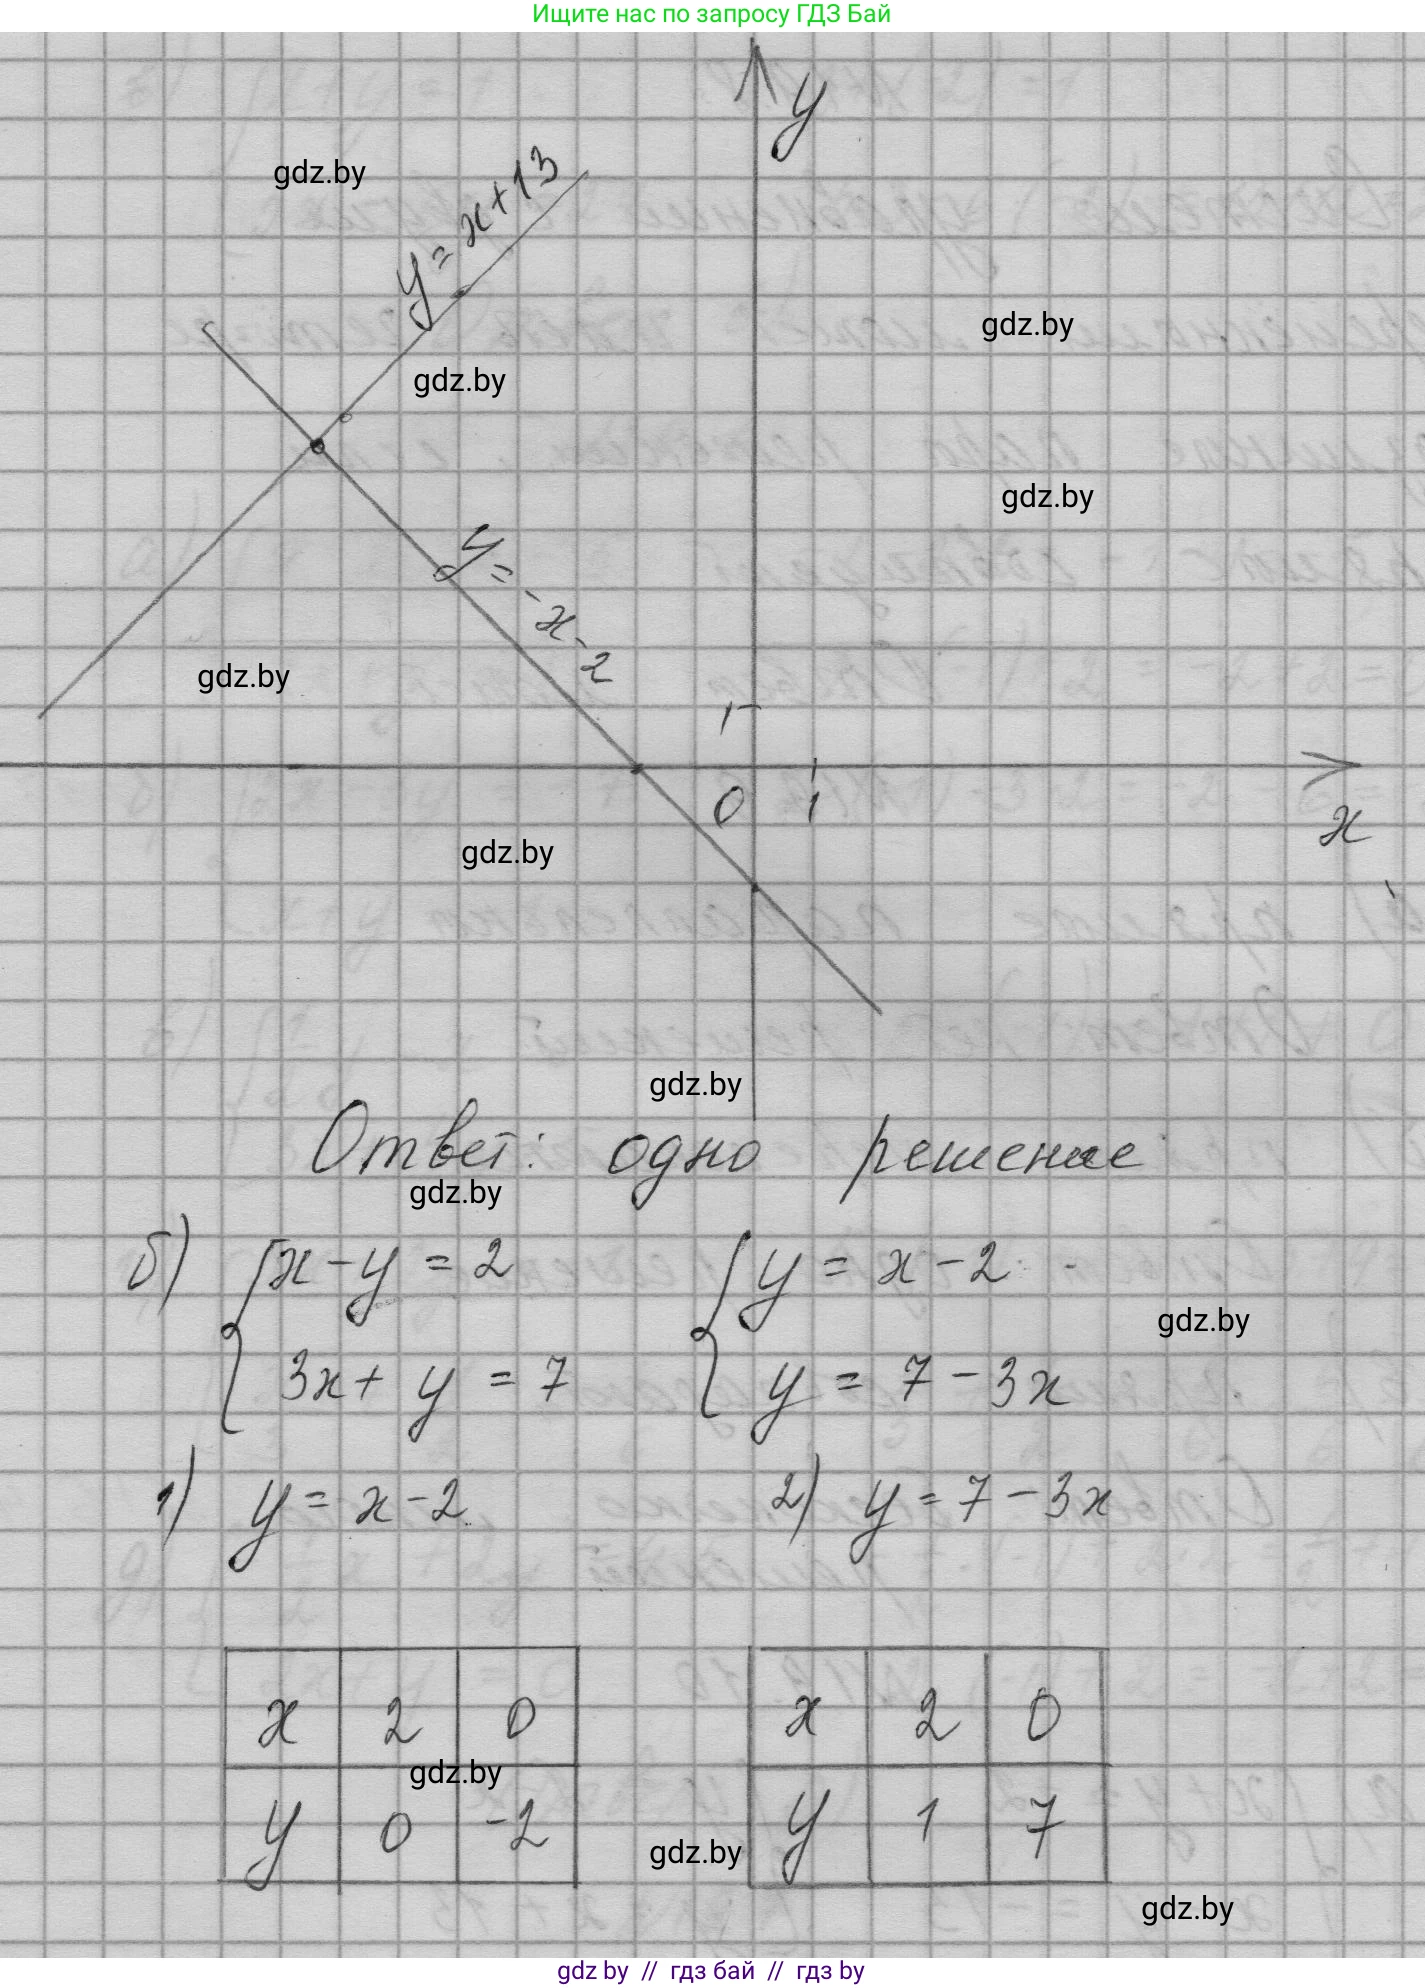 Ищите нас по запросу ГДЗ Бай
y
gdz.by
y = x+13
gdz.by
gdz.by
gdz.by
y = -x-2
gdz.by
1
0 1
x
gdz.by
gdz.by
Ответ: одно решение
gdz.by
б) { x-y = 2 { y = x-2
gdz.by
3x+ y = 7 y = 7-3x
1) y = x-2 2) y = 7-3x
x 2 0 x 2 0
gdz.by
y 0 -2 y 1 7
gdz.by
gdz.by
gdz by // гдз бай // гдз by